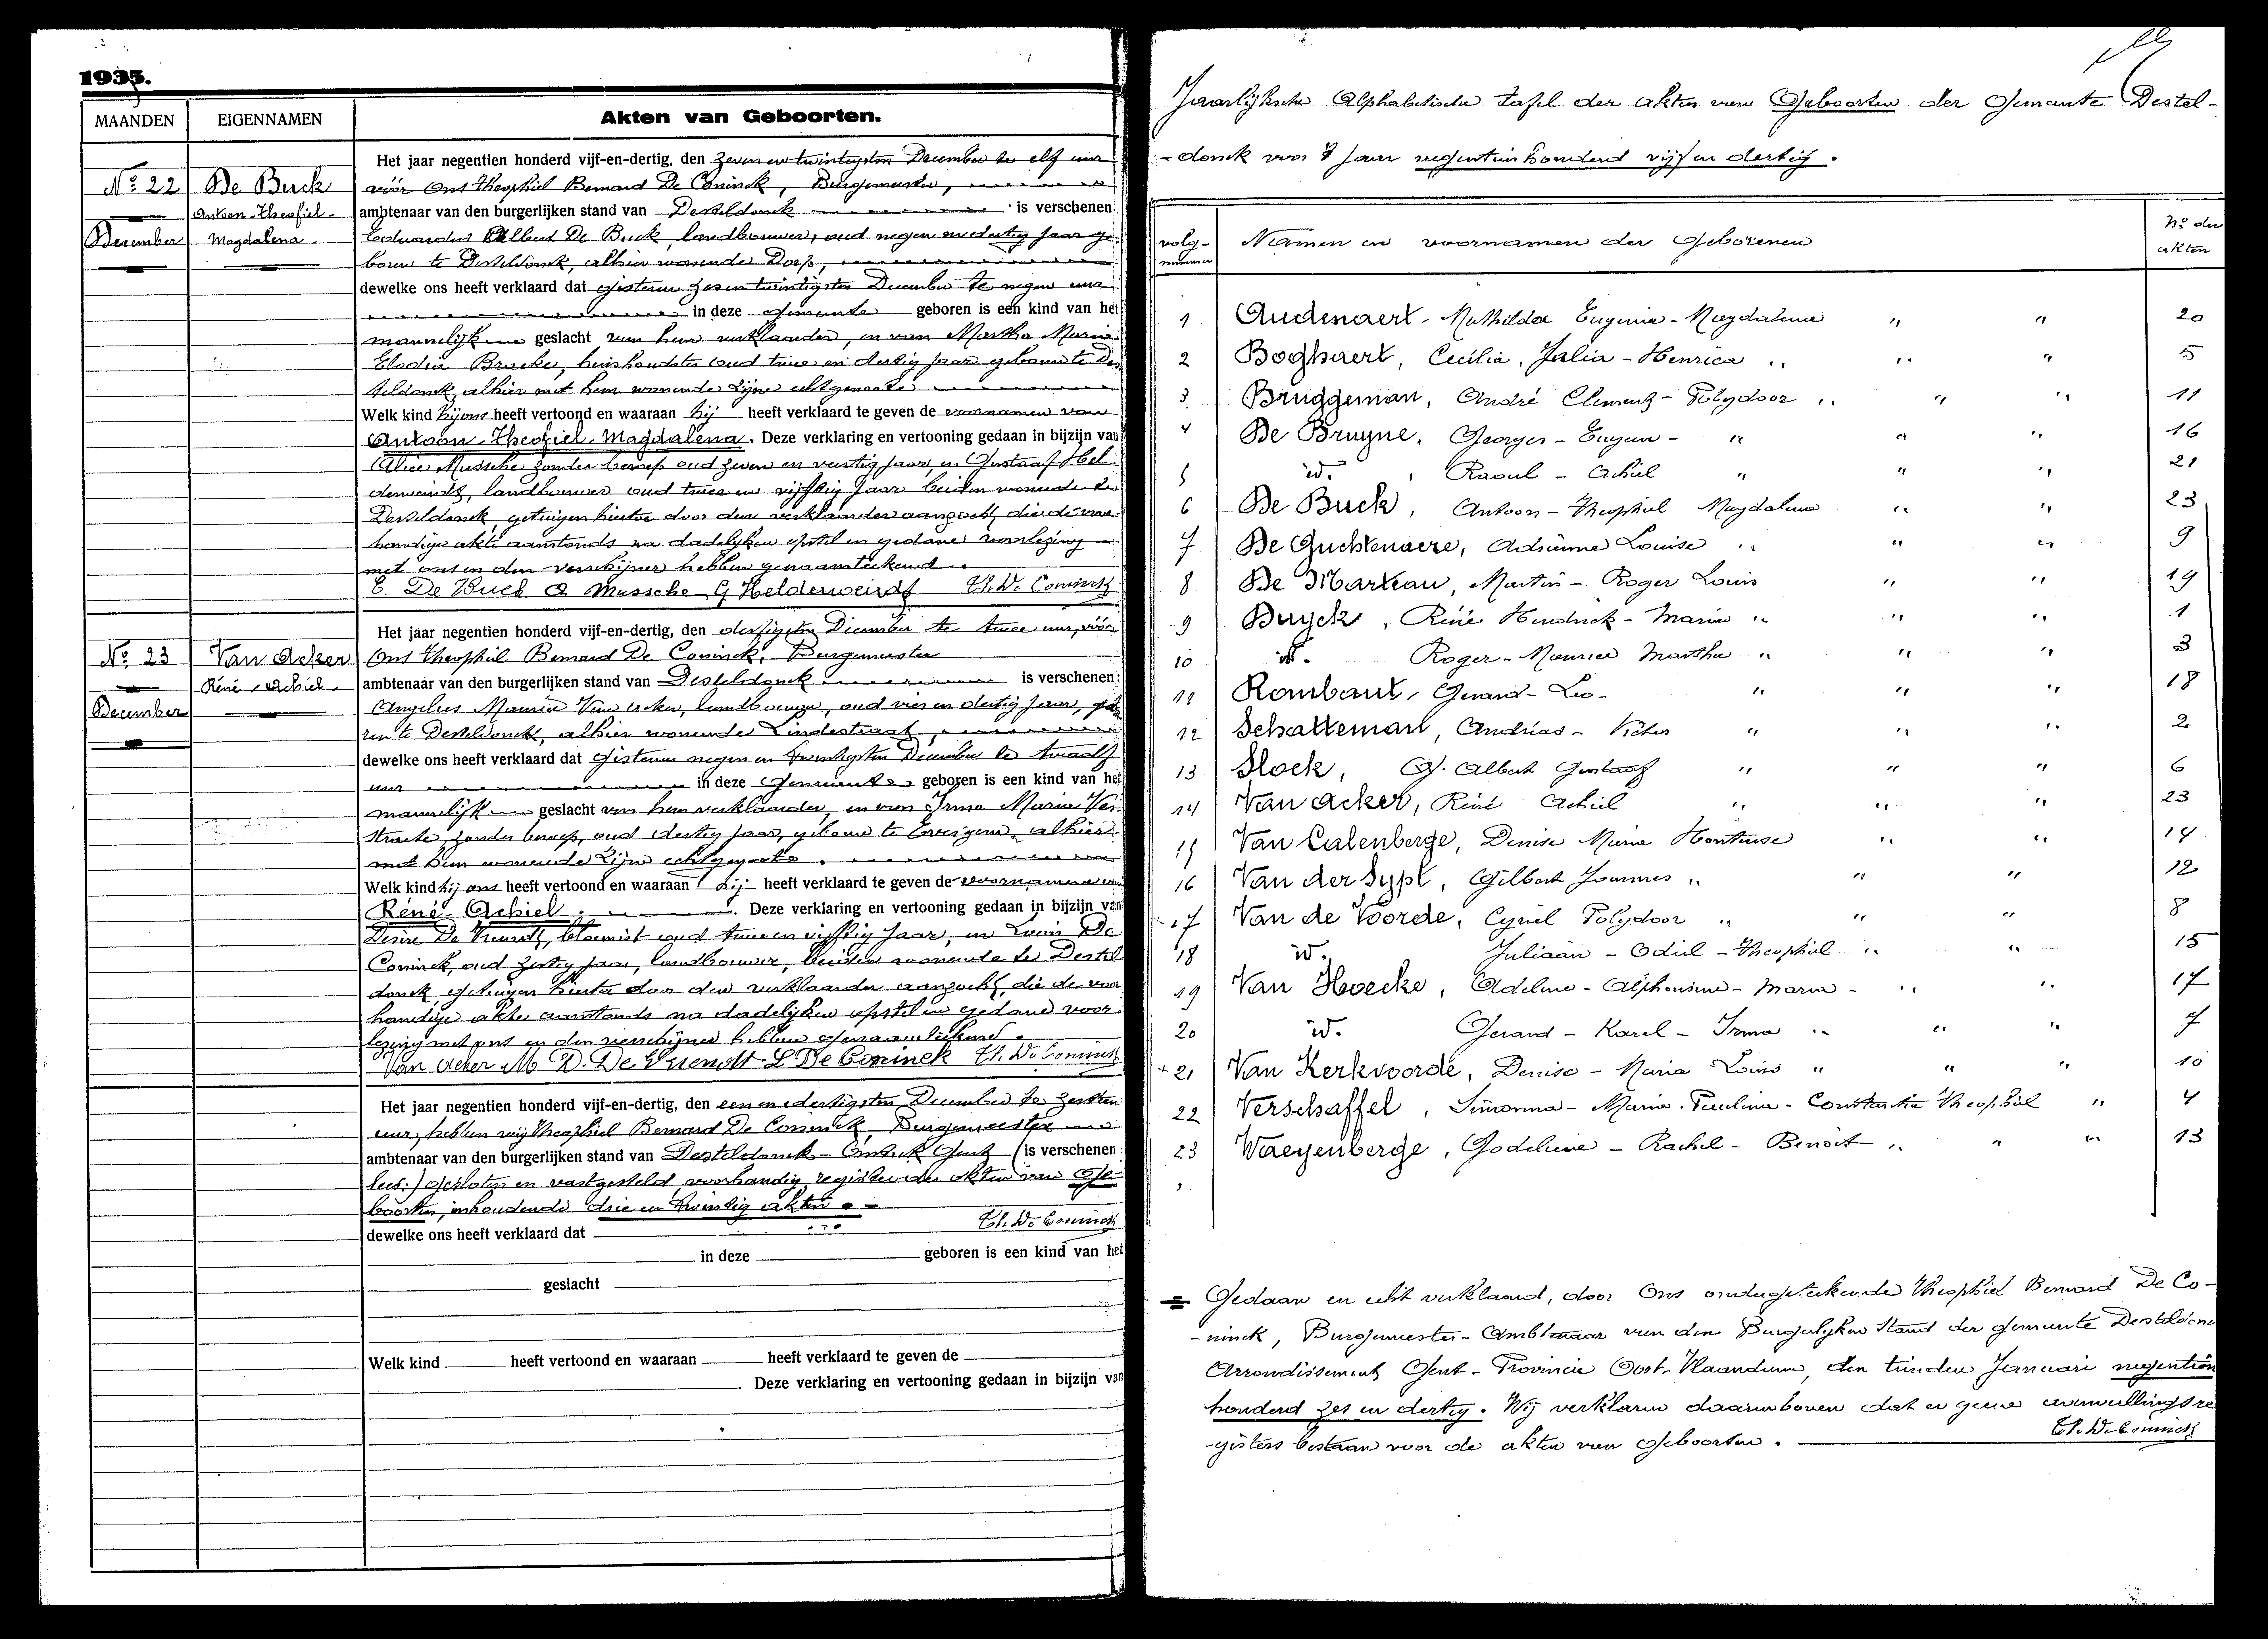 1935.
MAANDEN
EIGENNAMEN
Akten van Geboorten.
Nº 22
De Buck
Antoon-Theofiel-
December
Magdalena.
Het jaar negentien honderd vijf-en-dertig, den zeven en twintigsten December te elf uur
vóór Ons Theophiel Bernard De Coninck, Burgemeester,
ambtenaar van den burgerlijken stand van Desteldonck is verschenen:
Eduardus Albert De Buck, landbouwer, oud negen en dertig jaar ge-
boren te Desteldonck, alhier wonende Dorp,
dewelke ons heeft verklaard dat gisteren zes en twintigsten December te negen uur
in deze Gemeente geboren is een kind van het
mannelijk geslacht van hem verklaarder, en van Martha Maria
Elodia Bracke, huishoudster oud twee en dertig jaar geboren te Des
teldonck, alhier met hem wonende zijne echtgenoote
Welk kind hij ons heeft vertoond en waaraan hij heeft verklaard te geven de voornamen van
Antoon-Theofiel-Magdalena. Deze verklaring en vertooning gedaan in bijzijn van
Alice Mussche zonder beroep oud zeven en veertig jaar, en Gustaaf Hel-
derweirdt, landbouwer oud twee en vijftig jaar beiden wonende te
Desteldonck, getuigen hiertoe door den verklaarder aanzocht, die de voor-
handige akte aanstonds na dadelijken opstel en gedane voorlezing
met ons en den verschijner hebben genaamteekend.
E. De Buck A Mussche G Helderweirdt Th. De Coninck
Nº 23
Van Acker
René-Achiel.
December
Het jaar negentien honderd vijf-en-dertig, den dertigsten December te twee uur, vóór
Ons Theophiel Bernard De Coninck, Burgemeester
ambtenaar van den burgerlijken stand van Desteldonck is verschenen:
Angelus Maurice Van Acker, landbouwer, oud vier en dertig jaar, gebo
ren te Desteldonck, alhier wonende Lindestraat,
dewelke ons heeft verklaard dat gisteren negen en twintigsten December te twaalf
uur in deze Gemeente geboren is een kind van het
mannelijk geslacht van hem verklaarder, en van Irma Maria Ver
straete, zonder beroep, oud dertig jaar, geboren te Evergem, alhier
met hem wonende zijne echtgenoote.
Welk kind hij ons heeft vertoond en waaraan hij heeft verklaard te geven de voornamen van
René-Achiel. Deze verklaring en vertooning gedaan in bijzijn van
Désiré De Vriendt, bloemist oud twee en vijftig jaar, en Louis De
Coninck, oud zestig jaar, landbouwer, beiden wonende te Destel
donck getuigen hiertoe door den verklaarder aanzocht, die de voor
handige akte aanstonds na dadelijken opstel en gedane voor-
lezing met ons en den verschijner hebben genaamteekend.
Van Acker M D. De Vriendt L De Coninck Th. De Coninck
Het jaar negentien honderd vijf-en-dertig, den een en dertigsten December te zestien
uur, hebben wij Theophiel Bernard De Coninck, Burgemeester
ambtenaar van den burgerlijken stand van Desteldonck - Gent (is verschenen:
lees:) gesloten en vastgesteld voorhandig register der akten van Ge-
boorten, inhoudende drie en twintig akten.
Th. De Coninck
dewelke ons heeft verklaard dat
in deze geboren is een kind van het
geslacht
Welk kind heeft vertoond en waaraan heeft verklaard te geven de
Deze verklaring en vertooning gedaan in bijzijn van
Jaarlijksche Alphabetische tafel der akten van Geboorten der Gemeente Destel-
-donck voor 't jaar negentien honderd vijf en dertig.
volg-
nummer
Namen en voornamen der Geborenen
Nº der
akten
1 Audenaert, Mathilda Eugenie-Magdalena " " 20
2 Boghaert, Cecilia, Julia-Henrica " " " 5
3 Bruggeman, André Clement-Polydoor " " " 11
4 De Bruyne, Georges-Eugeen- " " " 16
5 id. , Raoul-Achiel " " " 21
6 De Buck, Antoon-Theophiel Magdalena " " 23
7 De Guchtenaere, Adrienne Louise " " " 9
8 De Marteau, Martin-Roger Louis " " 19
9 Buyck, René Hendrick-Maria " " " 1
10 id. Roger-Maurice Martha " " " 3
11 Rombaut, Gerard-Leo- " " " 18
12 Schatteman, Andréas-Victor " " " 2
13 Slock, G. Albert Gustaaf " " " 6
14 Van Acker, René Achiel " " " 23
15 Van Calenberge, Denise Maria Hortense " " 14
16 Van der Sypt, Gilbert Joannes " " " 12
17 Van de Voorde, Cyriel Polydoor " " " 8
18 id. Juliaan-Odiel-Theophiel " " 15
19 Van Hoecke, Adeline-Alphonsine-Maria- " " 17
20 id. Gerard-Karel-Irma " " " 7
+ 21 Van Kerkvoorde, Denise-Maria Louis " " " 10
22 Verschaffel, Simonna-Maria-Paulina-Constantia Theophiel " 4
23 Waeyenberge, Godelieve-Rachel-Benoit " " " 13
= Gedaan en echt verklaard, door Ons ondergeteekende Theophiel Bernard De Co-
-ninck, Burgemeester-Ambtenaar van den Burgerlijken Stand der gemeente Desteldonck
Arrondissement Gent-Provincie Oost-Vlaanderen, den tienden Januari negentien
honderd zes en dertig. Wij verklaren daarenboven dat er geene aanvullingsre
-gisters bestaan voor de akten van Geboorten.
Th. De Coninck